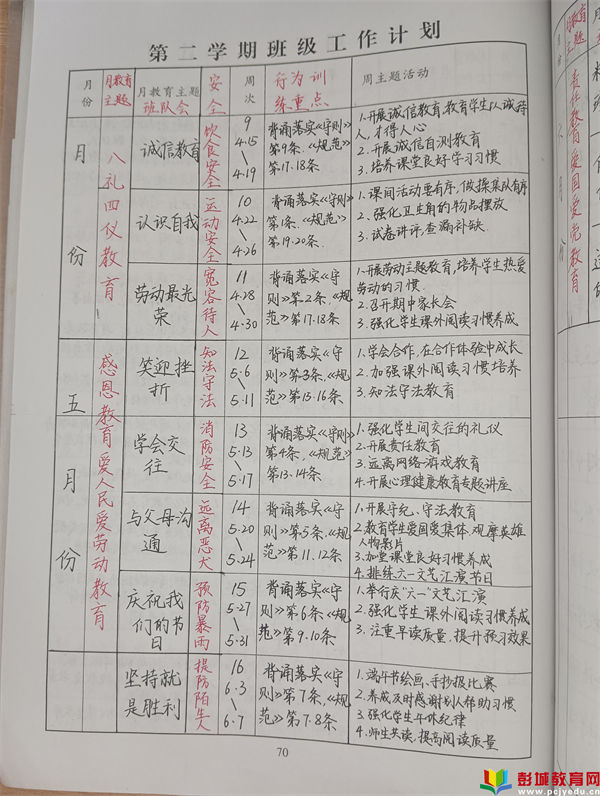 第二学期班级工作计划
月份
月教育主题
月教育主题
班队会
安全
周次
行为训
练重点
周主题活动
月
份
八礼四仪教育
诚信教育
饮食安全
9
4.15
4.19
背诵落实《守则》
第9条.《规范》
第17.18条
1.开展诚信教育,教育学生以诚待
人,才得人心
2.开展诚信自测教育
3.培养课堂良好学习习惯
认识自我
运动安全
10
4.22
4.26
背诵落实《守则》
第1条.《规范》
第19.20条.
1.课间活动要有序,做操集队有序
2.强化卫生角的物品摆放
3.试卷讲评,查漏补缺.
劳动最光
荣
宽容待人
11
4.28
4.30
背诵落实《守
则》第2条.《规
范》第17.18条
1.开展劳动主题教育,培养学生热爱
劳动的习惯.
2.召开期中家长会
3.强化学生课外阅读习惯养成
五
月
份
感恩教育 爱人民爱劳动教育
笑迎挫
折
知法守法
12
5.6
5.11
背诵落实《守
则》第3条.《规
范》第15.16条
1.学会合作,在合作体验中成长
2.加强课外阅读习惯培养
3.知法守法教育
学会交
往
消防安全
13
5.13
5.17
背诵落实《守则》
第4条,《规范》
第13.14条
1.强化学生间交往的礼仪
2.开展责任教育
3.远离网络游戏教育
4.开展心理健康教育专题讲座
与父母沟
通
远离恶犬
14
5.20
5.24
背诵落实《守
则》第5条.《规
范》第11.12条
1.开展守纪、守法教育
2.教育学生爱国爱集体.观摩英雄
人物影片
3.加望课堂良好习惯养成
4.排练六一文艺汇演节目
庆祝我
们的节
日
预防暴雨
15
5.27
5.31
背诵落实《守
则》第6条《规
范》第9.10条
1.举行庆"六一"文艺汇演
2.强化学生课外阅读习惯养成
3.注重早读质量,提升预习效果
坚持就
是胜利
提防陌生人
16
6.3
6.7
背诵落实《守
则》第7条.《规
范》第7.8条
1.端午节绘画、手抄报比赛
2.养成及时感谢别人帮助习惯
3.强化学生午休纪律
4.师生共读,提高阅读质量
70
责任教育 爱国爱党教育
彭城教育网
www.pcjyedu.cn